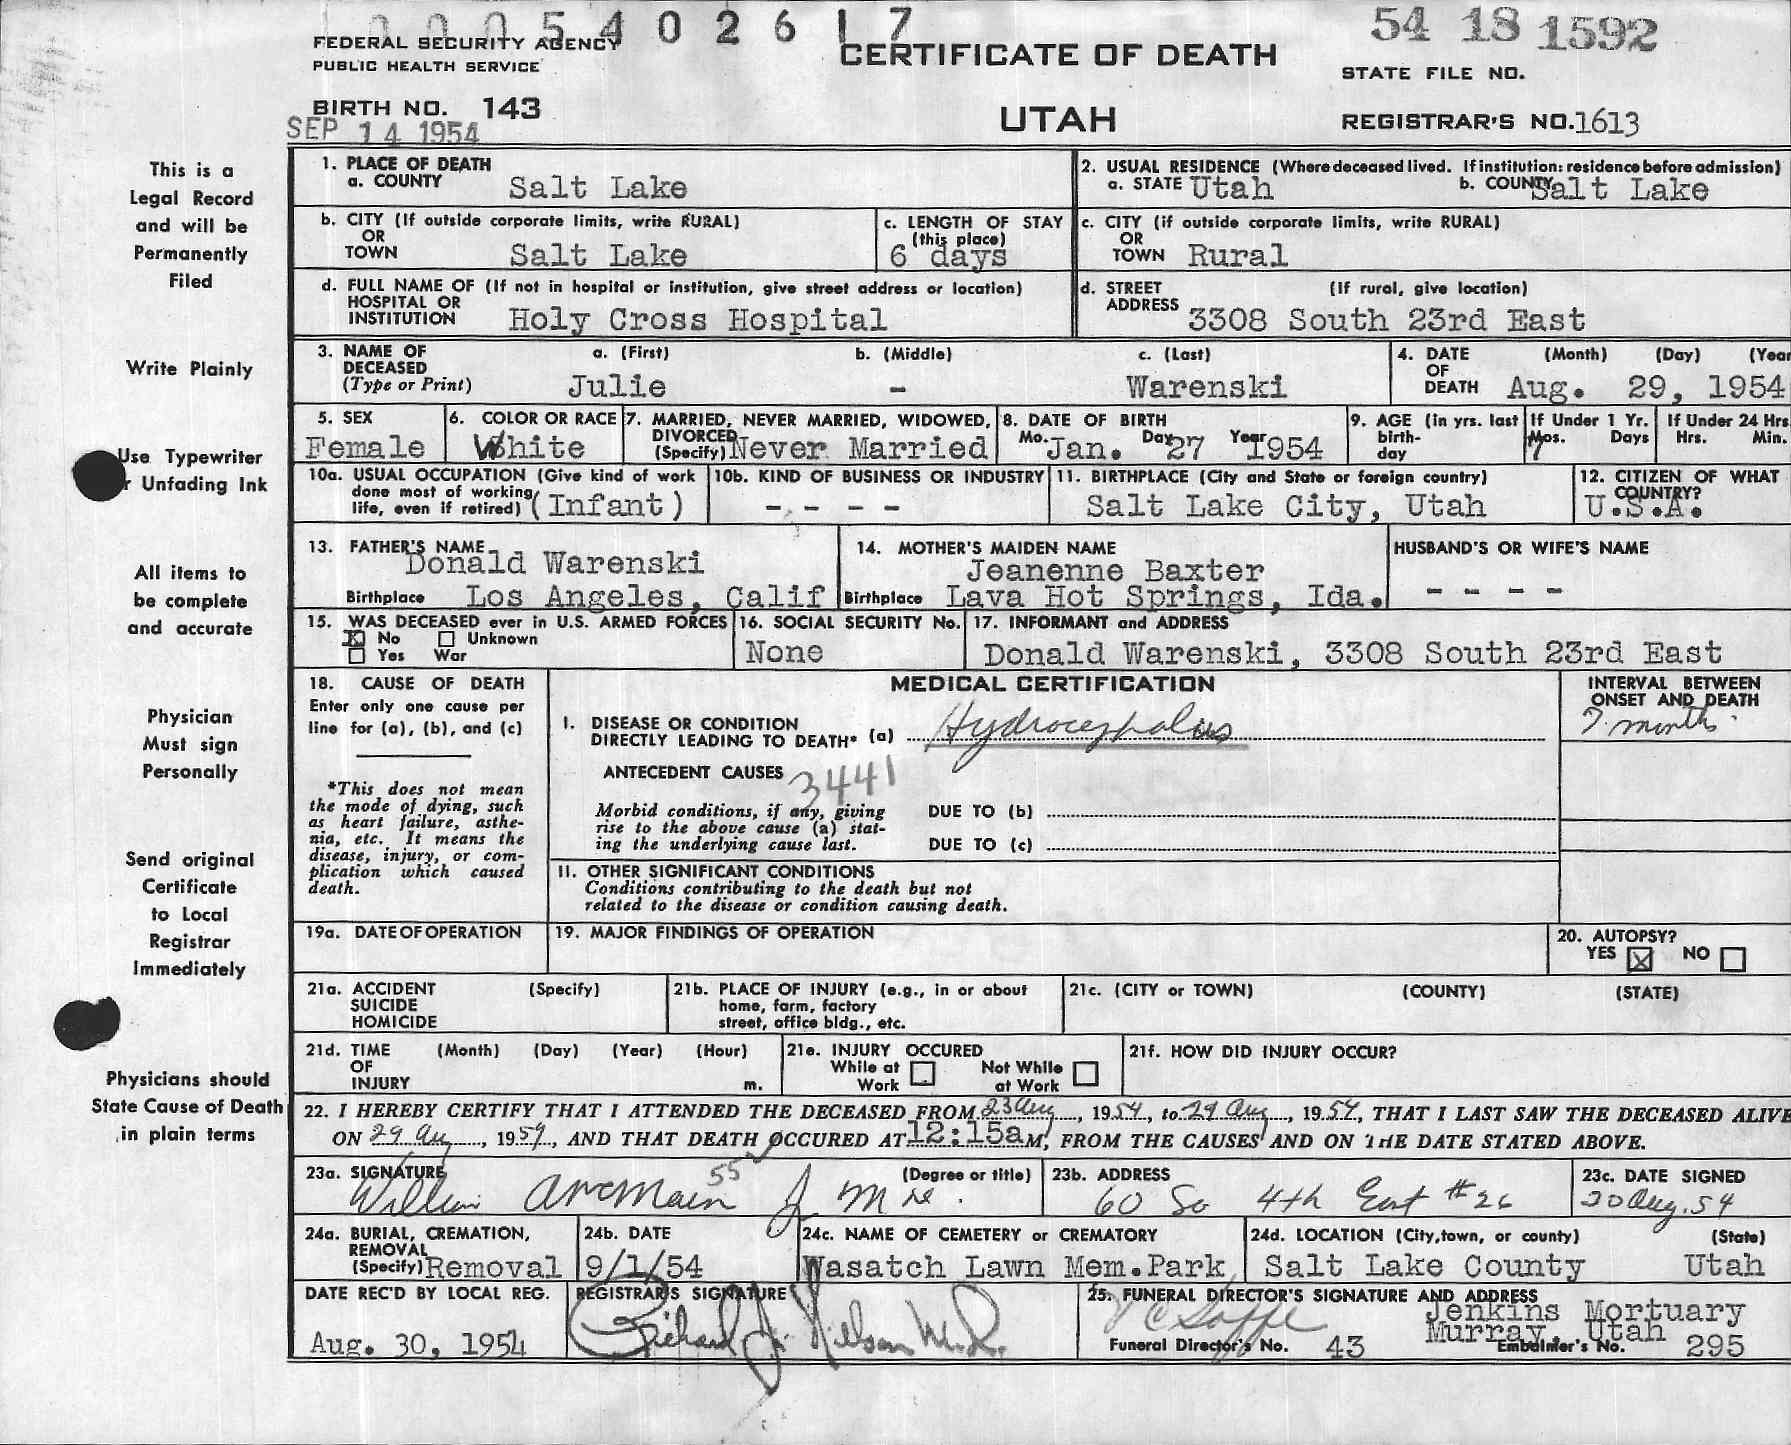 0005402617
54 18 1592
FEDERAL SECURITY AGENCY
PUBLIC HEALTH SERVICE
CERTIFICATE OF DEATH
STATE FILE NO.
BIRTH NO. 143
UTAH
REGISTRAR'S NO. 1613
SEP 14 1954
This is a
Legal Record
and will be
Permanently
Filed
Write Plainly
Use Typewriter
r Unfading Ink
All items to
be complete
and accurate
Physician
Must sign
Personally
Send original
Certificate
to Local
Registrar
Immediately
Physicians should
State Cause of Death
in plain terms
1. PLACE OF DEATH
a. COUNTY Salt Lake
2. USUAL RESIDENCE (Where deceased lived. If institution: residence before admission)
a. STATE Utah b. COUNTY Salt Lake
b. CITY (If outside corporate limits, write RURAL)
OR
TOWN Salt Lake
c. LENGTH OF STAY
(this place)
6 days
c. CITY (if outside corporate limits, write RURAL)
OR
TOWN Rural
d. FULL NAME OF (If not in hospital or institution, give street address or location)
HOSPITAL OR
INSTITUTION Holy Cross Hospital
d. STREET (If rural, give location)
ADDRESS 3308 South 23rd East
3. NAME OF DECEASED a. (First) b. (Middle) c. (Last)
(Type or Print) Julie - Warenski
4. DATE OF DEATH (Month) (Day) (Year
Aug. 29, 1954
5. SEX
Female
6. COLOR OR RACE
White
7. MARRIED, NEVER MARRIED, WIDOWED,
DIVORCED
(Specify) Never Married
8. DATE OF BIRTH
Mo. Jan. Day 27 Year 1954
9. AGE (in yrs. last
birth-
day
If Under 1 Yr.
Mos. Days
7
If Under 24 Hrs.
Hrs. Min.
10a. USUAL OCCUPATION (Give kind of work
done most of working
life, even if retired) (Infant)
10b. KIND OF BUSINESS OR INDUSTRY
- - - -
11. BIRTHPLACE (City and State or foreign country)
Salt Lake City, Utah
12. CITIZEN OF WHAT
COUNTRY?
U.S.A.
13. FATHER'S NAME
Donald Warenski
Birthplace Los Angeles, Calif
14. MOTHER'S MAIDEN NAME
Jeanenne Baxter
Birthplace Lava Hot Springs, Ida.
HUSBAND'S OR WIFE'S NAME
- - - -
15. WAS DECEASED ever in U.S. ARMED FORCES
No Unknown
Yes War
16. SOCIAL SECURITY No.
None
17. INFORMANT and ADDRESS
Donald Warenski, 3308 South 23rd East
18. CAUSE OF DEATH
Enter only one cause per
line for (a), (b), and (c)
*This does not mean
the mode of dying, such
as heart failure, asthe-
nia, etc. It means the
disease, injury, or com-
plication which caused
death.
MEDICAL CERTIFICATION
INTERVAL BETWEEN
ONSET AND DEATH
7 months
I. DISEASE OR CONDITION
DIRECTLY LEADING TO DEATH* (a) Hydrocephalus
ANTECEDENT CAUSES 3441
Morbid conditions, if any, giving
rise to the above cause (a) stat-
ing the underlying cause last.
DUE TO (b)
DUE TO (c)
II. OTHER SIGNIFICANT CONDITIONS
Conditions contributing to the death but not
related to the disease or condition causing death.
19a. DATE OF OPERATION
19. MAJOR FINDINGS OF OPERATION
20. AUTOPSY?
YES X NO
21a. ACCIDENT (Specify)
SUICIDE
HOMICIDE
21b. PLACE OF INJURY (e.g., in or about
home, farm, factory
street, office bldg., etc.
21c. (CITY or TOWN) (COUNTY) (STATE)
21d. TIME (Month) (Day) (Year) (Hour)
OF
INJURY m.
21e. INJURY OCCURED
While at Work Not While at Work
21f. HOW DID INJURY OCCUR?
22. I HEREBY CERTIFY THAT I ATTENDED THE DECEASED FROM 23 Aug, 1954, to 29 Aug, 1954, THAT I LAST SAW THE DECEASED ALIVE
ON 29 Aug, 1954, AND THAT DEATH OCCURED AT 12:15a M, FROM THE CAUSES AND ON THE DATE STATED ABOVE.
23a. SIGNATURE (Degree or title)
55
William
23b. ADDRESS
60 So 4th East #26
23c. DATE SIGNED
30 Aug. 54
24a. BURIAL, CREMATION,
REMOVAL
(Specify) Removal
24b. DATE
9/1/54
24c. NAME OF CEMETERY or CREMATORY
Wasatch Lawn Mem.Park
24d. LOCATION (City, town, or county) (State)
Salt Lake County Utah
DATE REC'D BY LOCAL REG.
Aug. 30, 1954
REGISTRAR'S SIGNATURE
Richard J. Nielson M.D.
25. FUNERAL DIRECTOR'S SIGNATURE AND ADDRESS
Jenkins Mortuary
Murray, Utah
Funeral Director's No. 43 Embalmer's No. 295